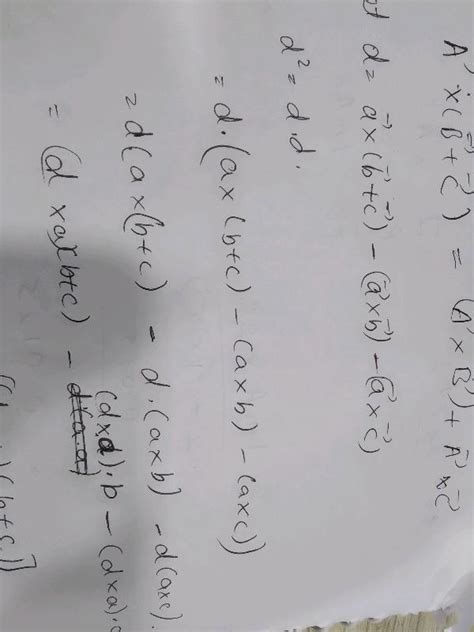 A⃗ × (B⃗ + C⃗) = (A⃗ × B⃗) + A⃗ × C⃗
d = a⃗ × (b⃗ + c⃗) - (a⃗ × b⃗) - (a⃗ × c⃗)
d² = d . d .
= d . (a × (b + c) - (a × b) - (a × c))
= d (a × (b + c) - d . (a × b) - d (a × c) .
= (d × a) (b + c) - (d × a) . b - (d × a) .
(b + c)]